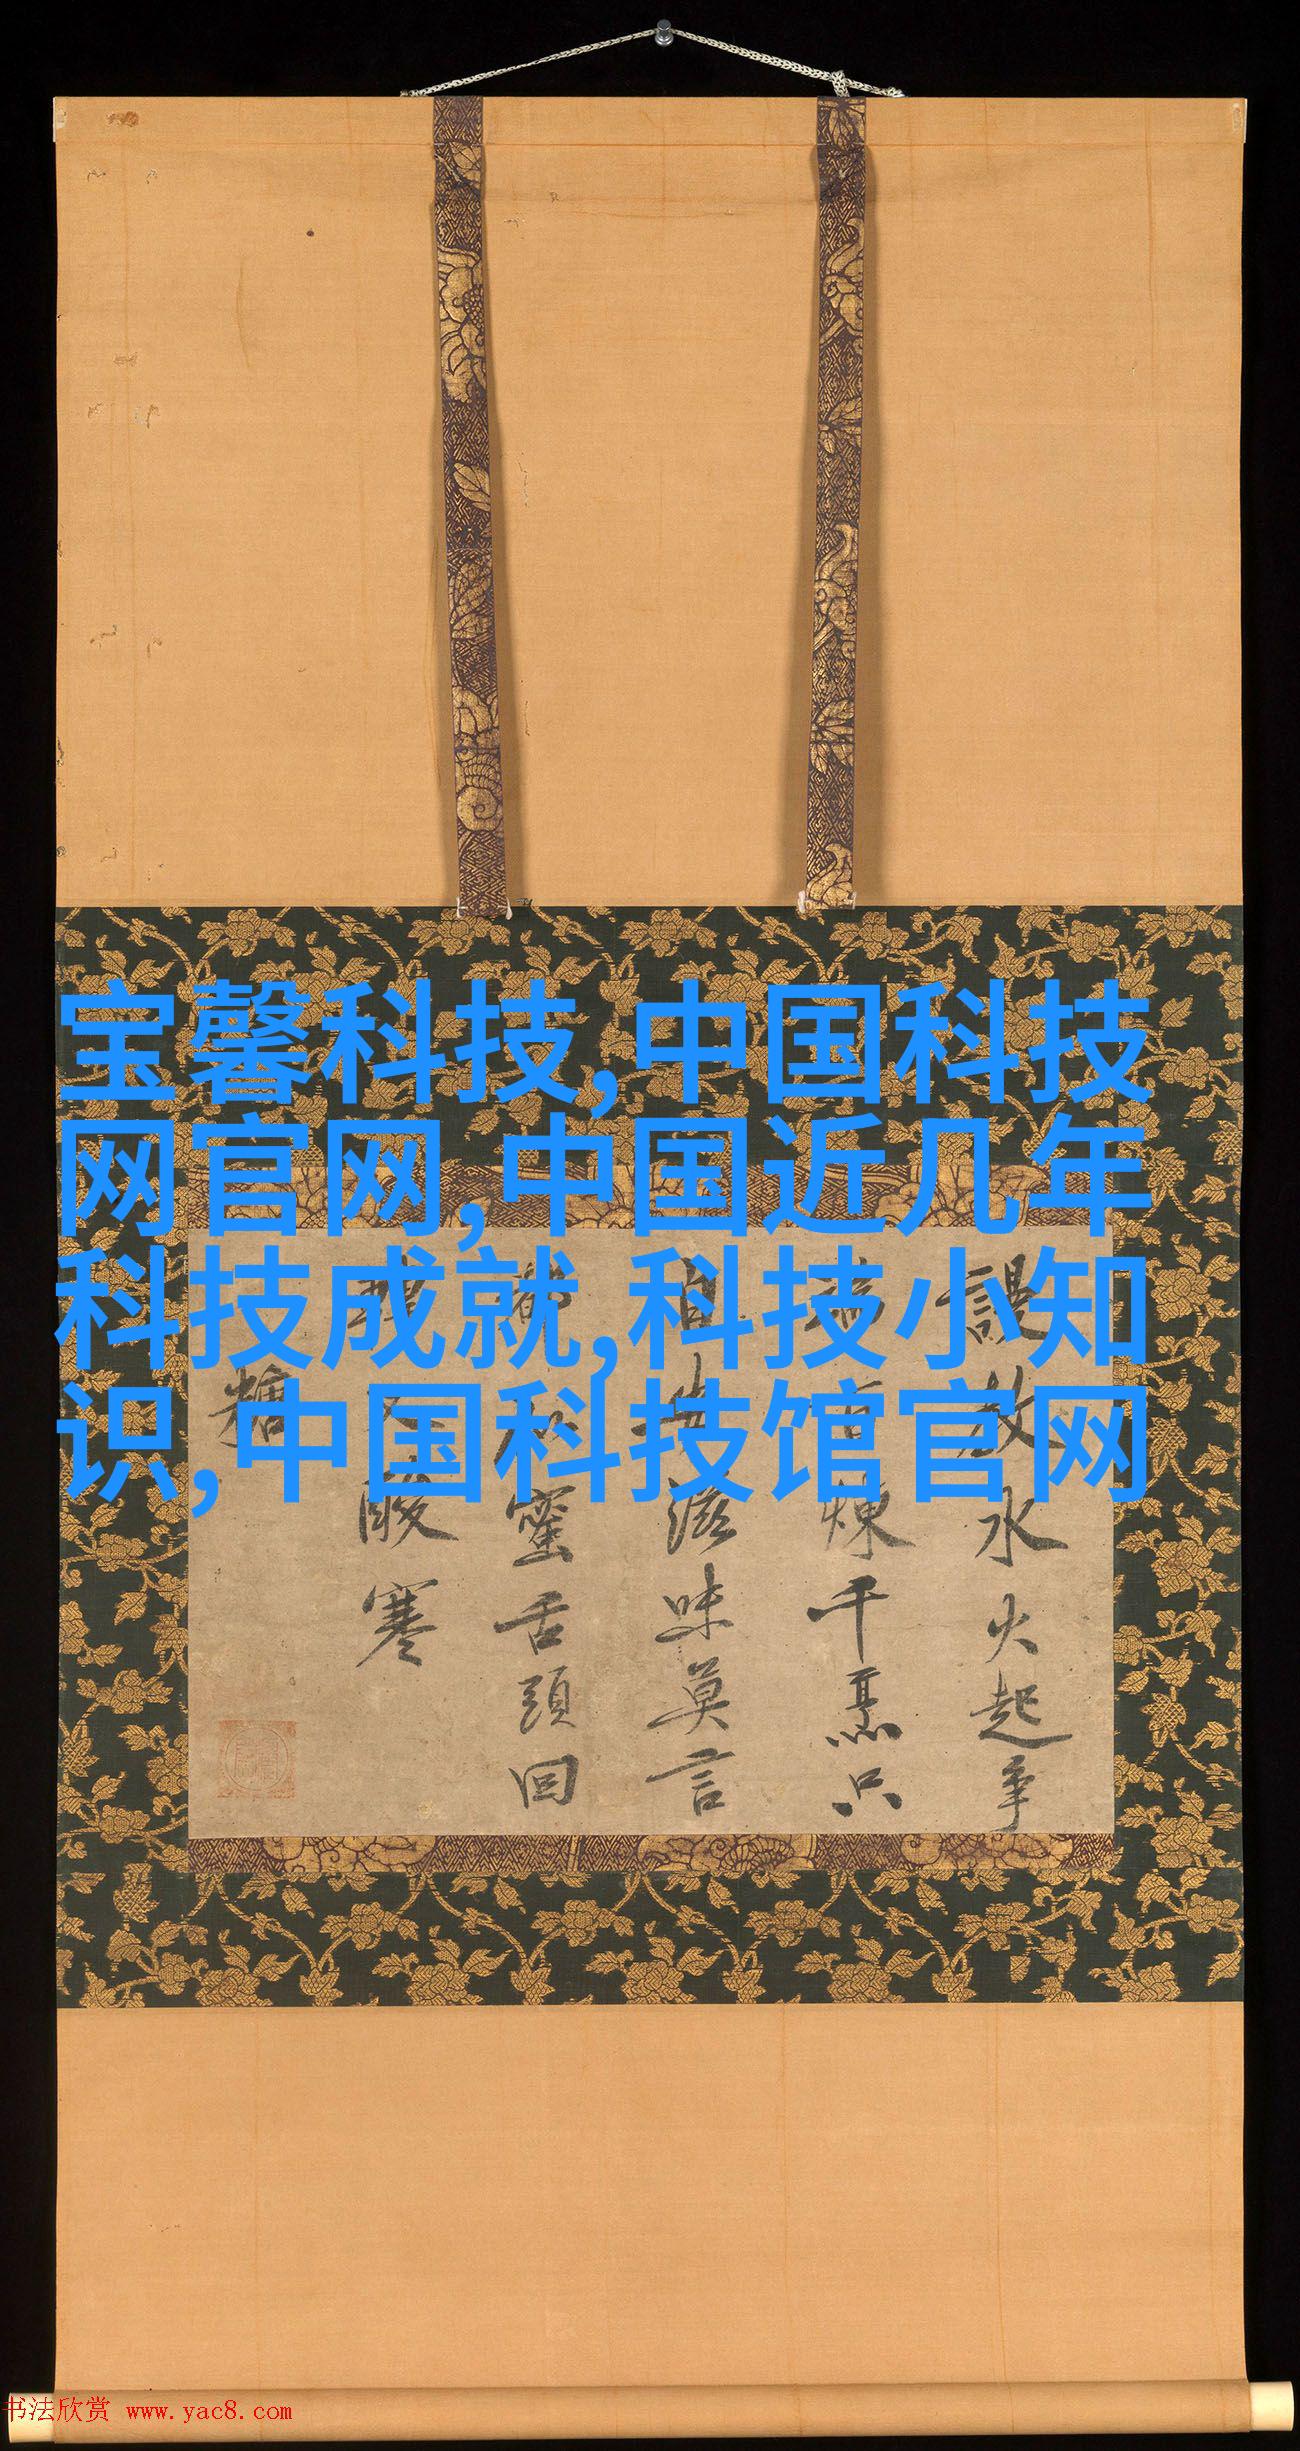 宝馨科技,中国科技
网官网,中国近几年
科技成就,科技小知
识,中国科技馆官网
謾放水火起争
煉千烹只
滋味莫言
蜜舌頭回
酸寒
糖
书法欣赏 www.yac8.com